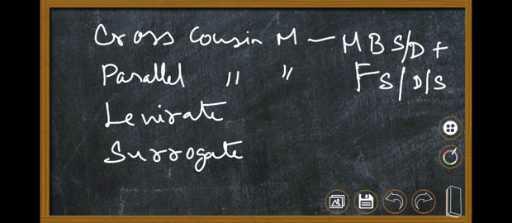 Cross Cousin M — MBS/D +
FS/D/S
Parallel " "
Levirate
Surrogate